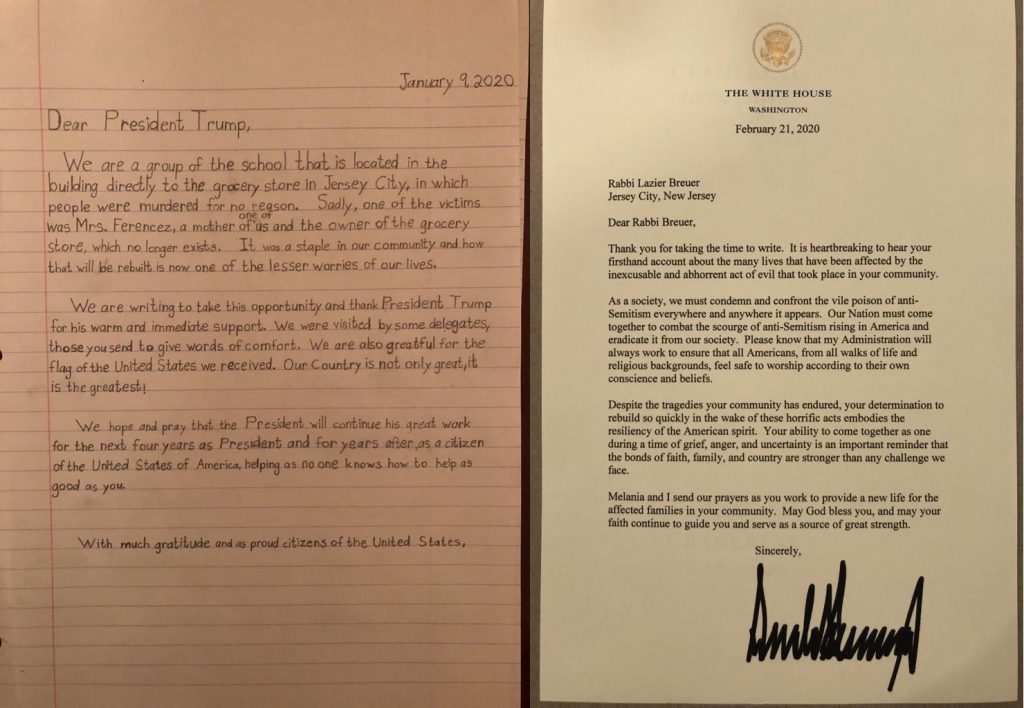 January 9, 2020
Dear President Trump,
We are a group of the school that is located in the
building directly to the grocery store in Jersey City, in which
people were murdered for no reason. Sadly, one of the victims
was Mrs. Ferencez, a mother one of of us and the owner of the grocery
store, which no longer exists. It was a staple in our community and how
that will be rebuilt is now one of the lesser worries of our lives.
We are writing to take this opportunity and thank President Trump
for his warm and immediate support. We were visited by some delegates,
those you send to give words of comfort. We are also greatful for the
flag of the United States we received. Our Country is not only great, it
is the greatest!
We hope and pray that the President will continue his great work
for the next four years as President and for years after, as a citizen
of the United States of America, helping as no one knows how to help as
good as you.
With much gratitude and as proud citizens of the United States,
THE WHITE HOUSE
WASHINGTON
February 21, 2020
Rabbi Lazier Breuer
Jersey City, New Jersey
Dear Rabbi Breuer,
Thank you for taking the time to write. It is heartbreaking to hear your
firsthand account about the many lives that have been affected by the
inexcusable and abhorrent act of evil that took place in your community.
As a society, we must condemn and confront the vile poison of anti-
Semitism everywhere and anywhere it appears. Our Nation must come
together to combat the scourge of anti-Semitism rising in America and
eradicate it from our society. Please know that my Administration will
always work to ensure that all Americans, from all walks of life and
religious backgrounds, feel safe to worship according to their own
conscience and beliefs.
Despite the tragedies your community has endured, your determination to
rebuild so quickly in the wake of these horrific acts embodies the
resiliency of the American spirit. Your ability to come together as one
during a time of grief, anger, and uncertainty is an important reminder that
the bonds of faith, family, and country are stronger than any challenge we
face.
Melania and I send our prayers as you work to provide a new life for the
affected families in your community. May God bless you, and may your
faith continue to guide you and serve as a source of great strength.
Sincerely,